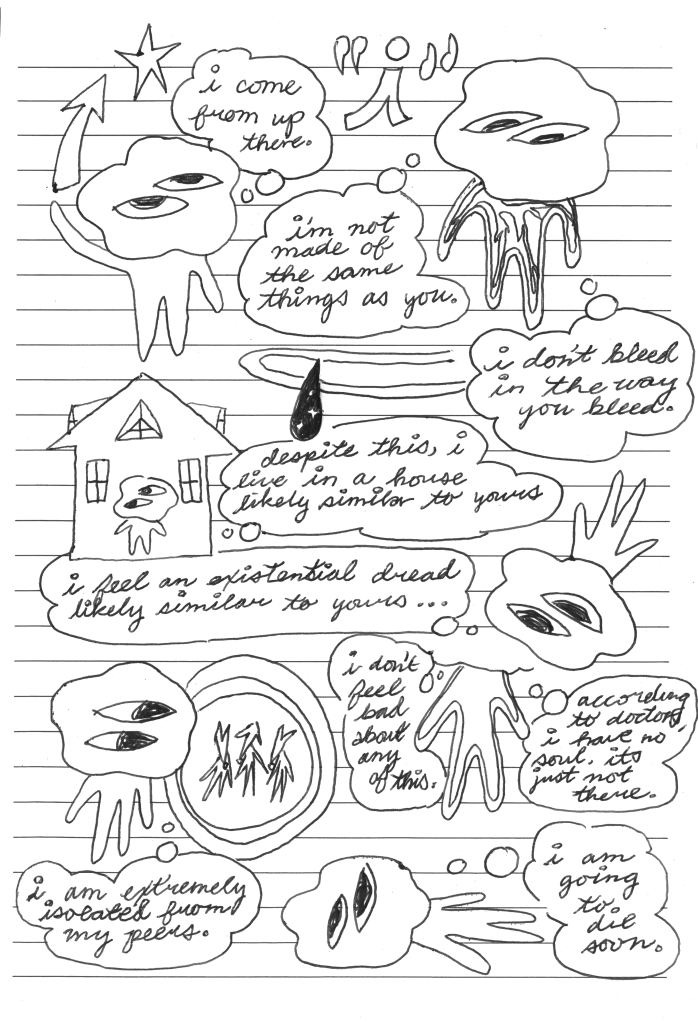 i come
from up
there.
i'm not
made of
the same
things as you.
i don't bleed
in the way
you bleed.
despite this, i
live in a house
likely similar to yours
i feel an existential dread
likely similar to yours...
i don't
feel
bad
about
any
of this.
according
to doctors,
i have no
soul. its
just not
there.
i am extremely
isolated from
my peers.
i am
going
to
die
soon.